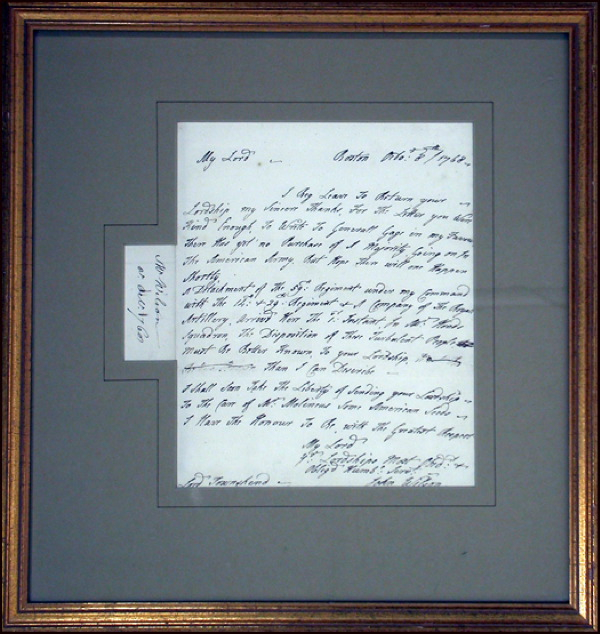 My Lord Boston Octo. 8th / 1768
I Beg Leave To Return your
Lordship my Sincere Thanks, For The Letter you Where
Kind Enough To Write To Generall Gage in my Favour
There Has yet no Purchase of A Majority Going on In
The American Army, But Hope There will one Happen
Shortly.
A Detachment of The 59th Regiment under my Command
with The 14th & 29th Regiment & A Company of The Royal
Artillery, Arrived Here The 1st Instant, in Mr. Hoods
Squadron, The Disposition of These Turbulent People
must Be Better Known, To your Lordship,
Than I Can Describe
I Shall Soon Take The Liberty of Sending your Lordship
To The Care of Mr. Molineux Some American Seeds
I Have The Honour To Be, with The Greatest Respect
My Lord
Yr. Lordships Most Obdt. &
Oblig'd Humb. Servt.
Lord Townshend John Wilson
Mr. Wilson